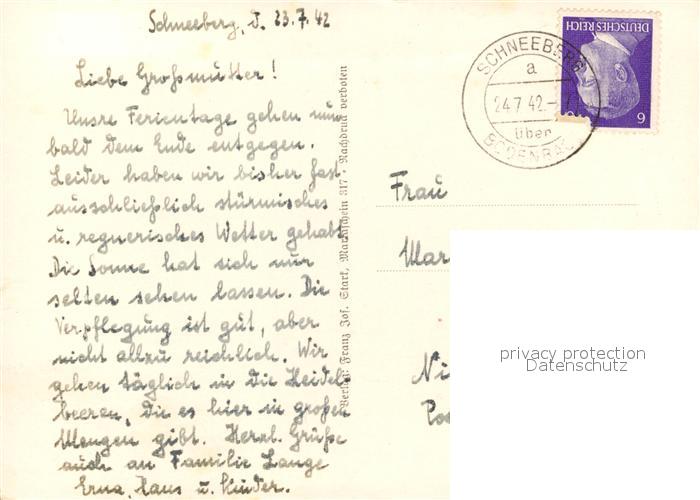 Schneeberg, d. 23.7.42
Liebe Großmutter!
Unsre Ferientage gehen nun
bald dem Ende entgegen.
Leider haben wir bisher fast
ausschließlich stürmisches
u. regnerisches Wetter gehabt.
Die Sonne hat sich nur
selten sehen lassen. Die
Verpflegung ist gut, aber
nicht allzu reichlich. Wir
gehen täglich in die Heidel-
beeren, die es hier in großen
Mengen gibt. Herzl. Grüße
auch an Familie Lange
Erna, Hans u. Kinder.
Verlag: Franz Jos. Stark, Mariaschein 317 · Nachdruck verboten
SCHNEEBERG
a
24.7.42.-
über
BODENBAC
DEUTSCHES REICH
6
Frau
Mar
Ni
privacy protection
Datenschutz